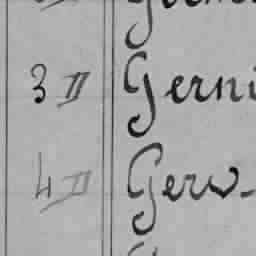 3 II Gerni
4 II Gerw-